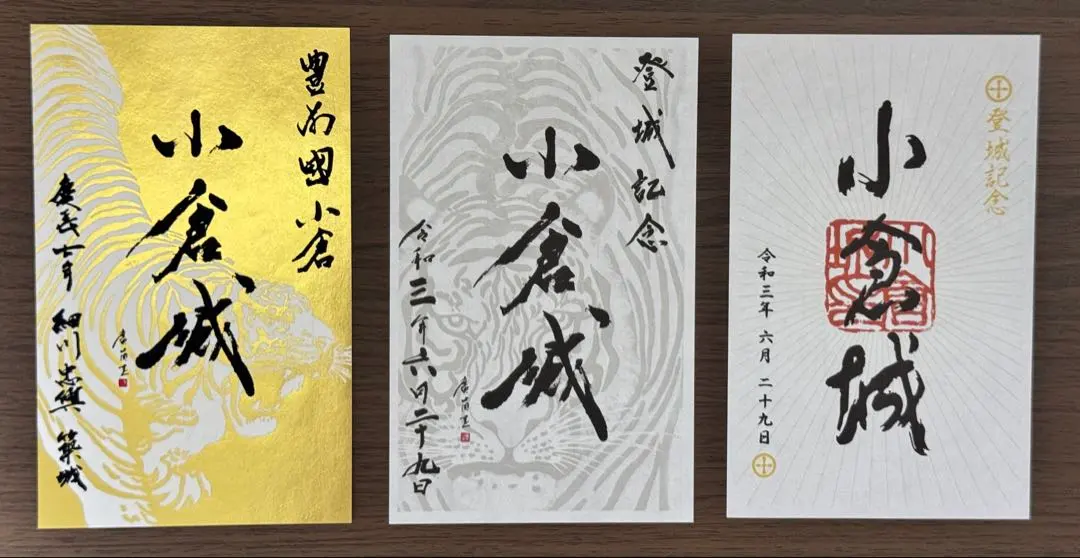 豊前國小倉
小倉城
慶長七年 細川忠興 築城
登城記念
小倉城
令和三年六月二十九日
登城記念
小倉城
令和三年 六月 二十九日